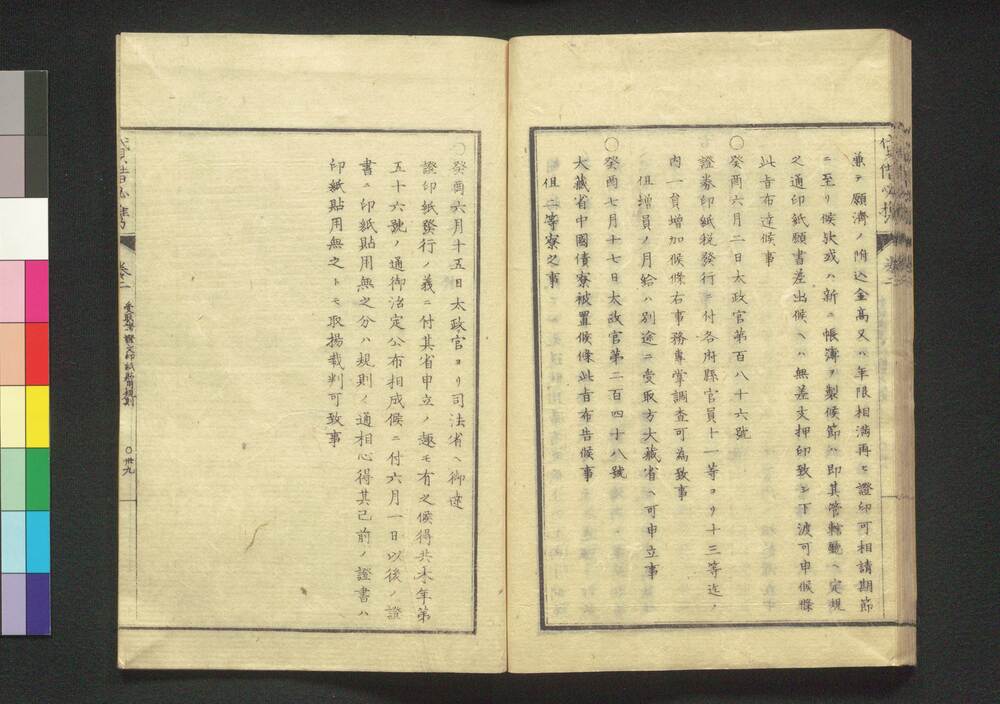 兼テ願濟ノ附込金高又ハ年限相満再ヒ證印可相請期節
ニ至リ候欤或ハ新ニ帳簿ヲ製候節ハ即其管轄廳ヘ定規
之通印紙願書差出候ヘハ無差支押印致シ下渡可申候條
此旨布達候事
〇癸酉六月二日太政官第百八十六號
證券印紙税發行ニ付各府縣官員十一等ヨリ十三等迄ノ
内一員増加候條右事務專掌調査可為致事
但増員ノ月給ハ別途ニ受取方大藏省ヘ可申立事
〇癸酉七月十七日太政官第二百四十八號
大藏省中國債寮被置候條此旨布告候事
但二等寮之事
〇癸酉六月十五日太政官ヨリ司法省ヘ御達
證印紙發行ノ義ニ付其省申立ノ趣モ有之候得共本年第
五十六號ノ通御治定公布相成候ニ付六月一日以後ノ證
書ニ印紙貼用無之分ハ規則ノ通相心得其已前ノ證書ハ
印紙貼用無之トモ取揚裁判可致事
卷二
〇卅九